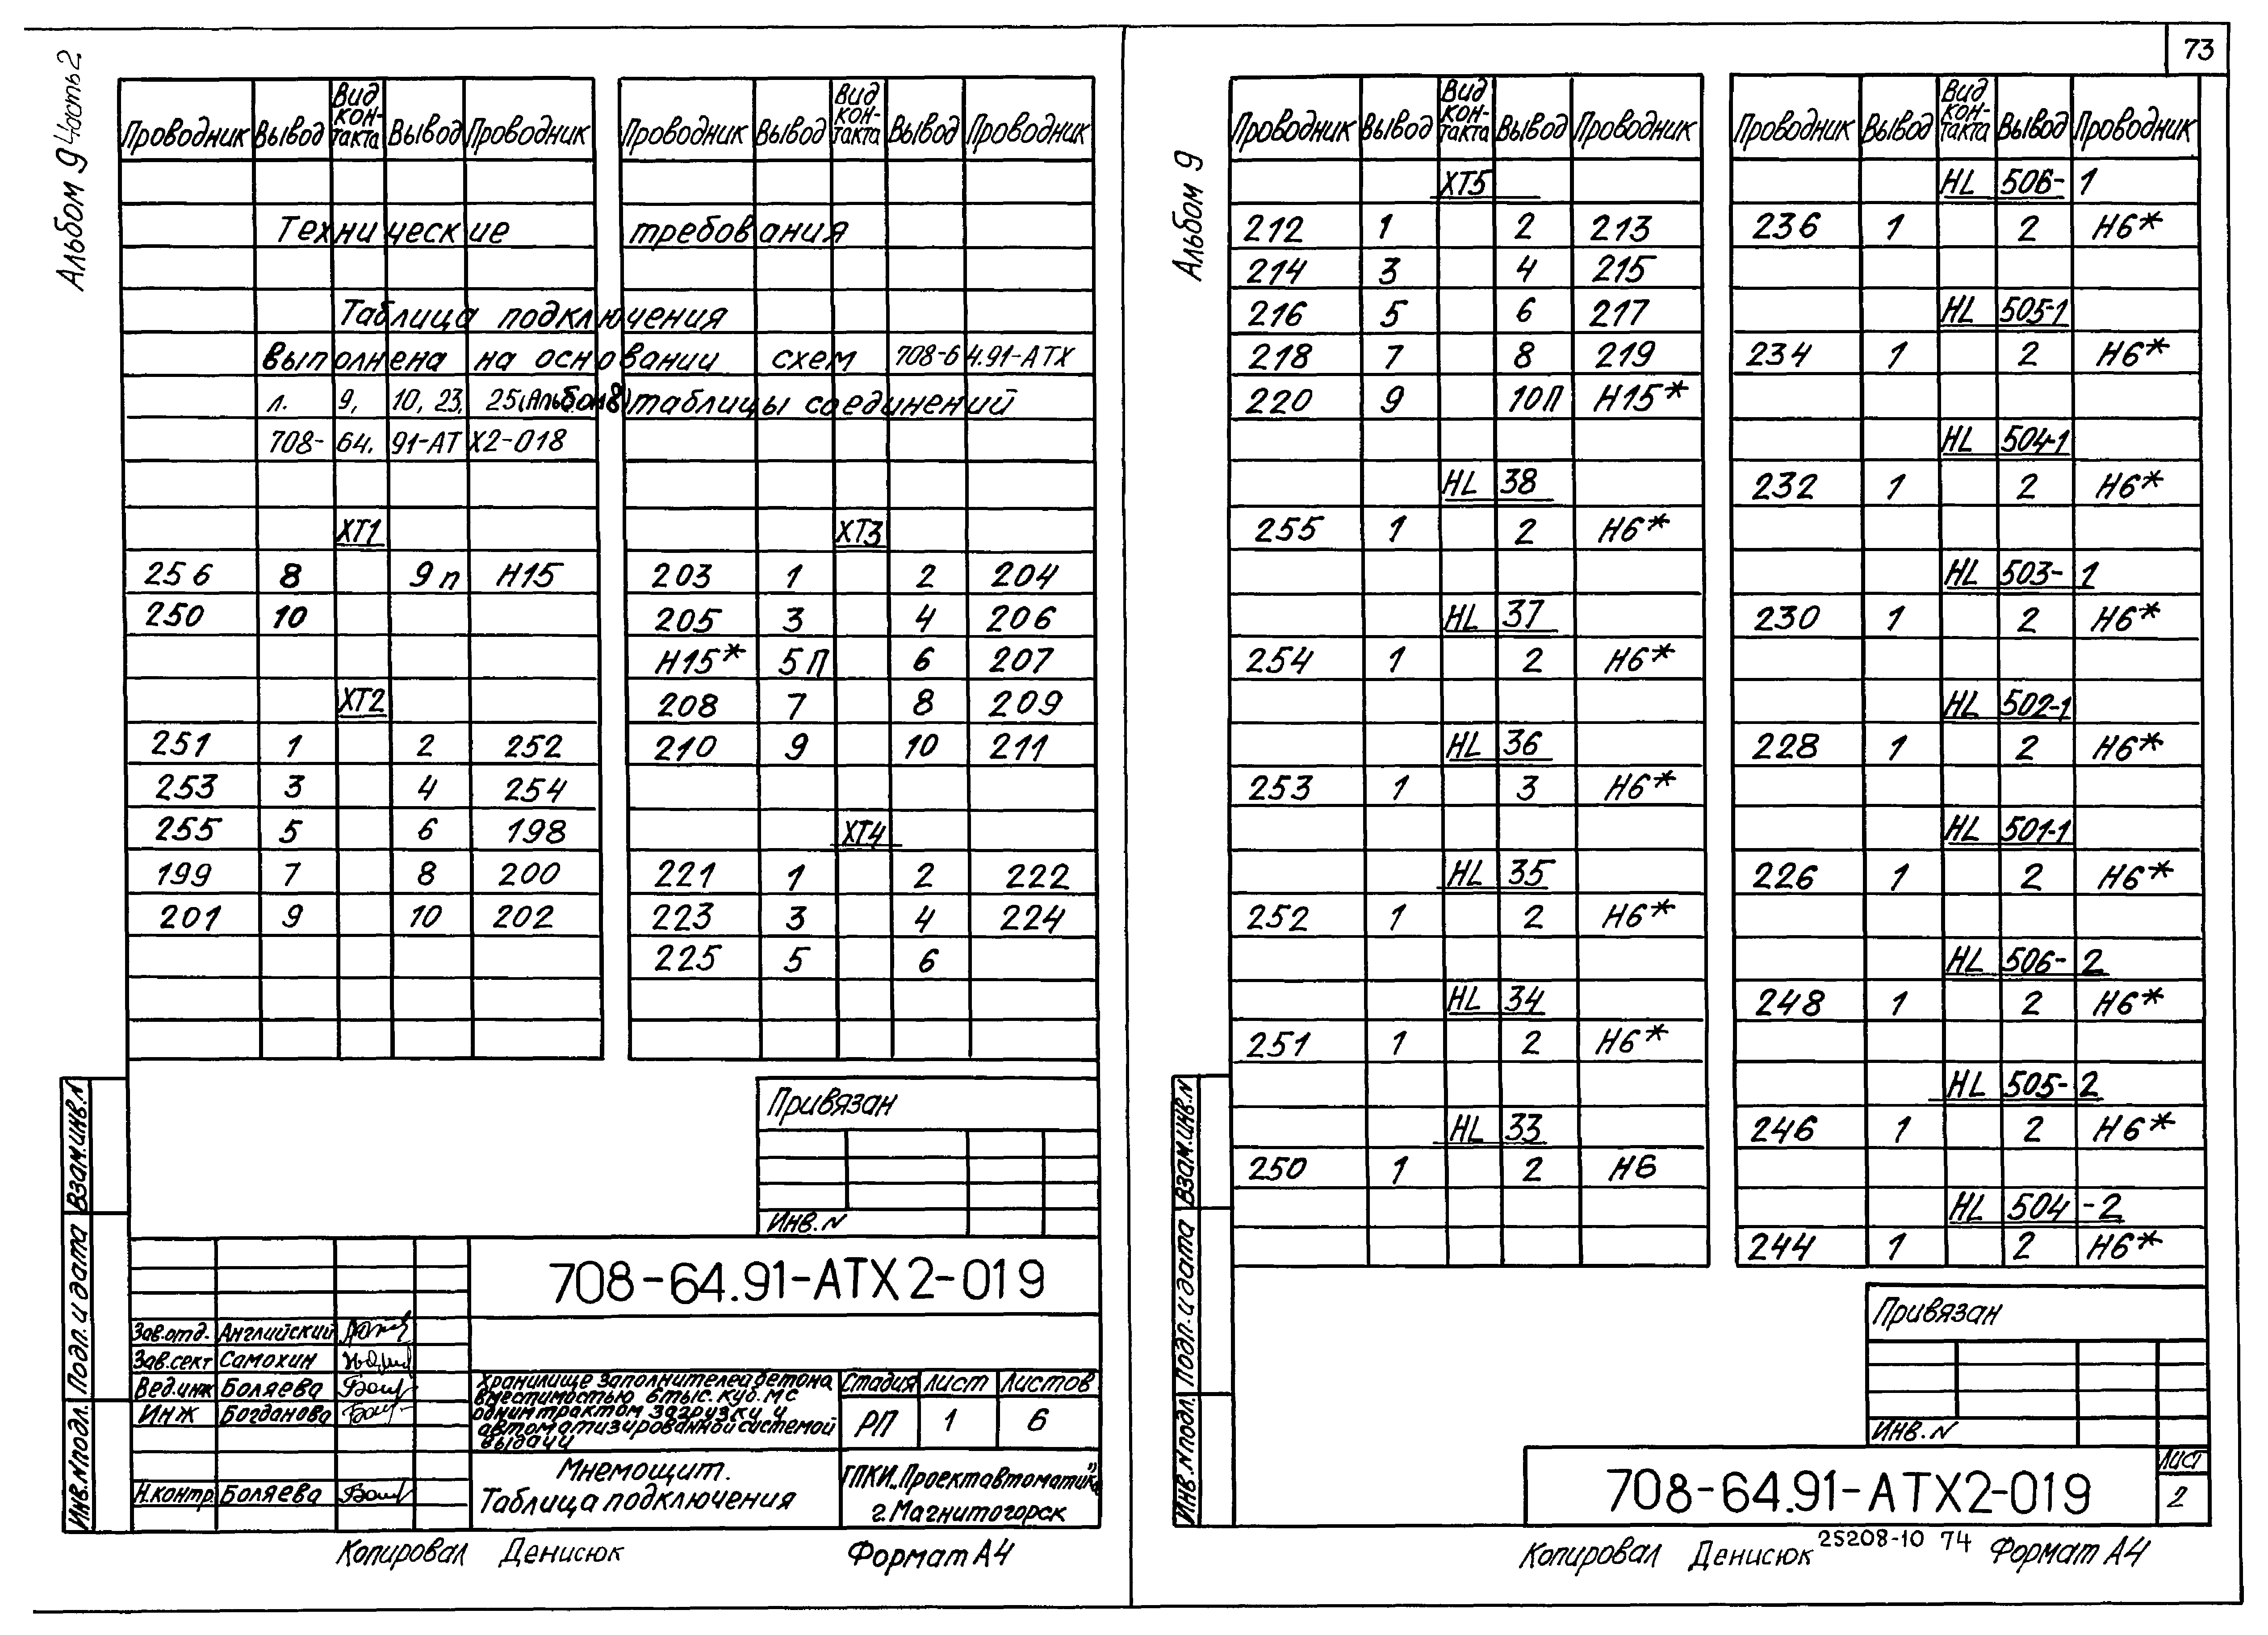 73
Альбом 9 Часть 2
Проводник Вывод Вид контакта Вывод Проводник
Проводник Вывод Вид контакта Вывод Проводник
Технические требования
Таблица подключения
выполнена на основании схем 708-64.91-АТХ
л. 9, 10, 23, 25 (Альбом 8) таблицы соединений
708-64.91-АТХ2-018
ХТ1
256 8 9п Н15
250 10
ХТ2
251 1 2 252
253 3 4 254
255 5 6 198
199 7 8 200
201 9 10 202
ХТ3
203 1 2 204
205 3 4 206
Н15* 5П 6 207
208 7 8 209
210 9 10 211
ХТ4
221 1 2 222
223 3 4 224
225 5 6
Привязан
Инв. N
708-64.91-АТХ2-019
Зав.отд. Английский
Зав.сект Самохин
Вед.инж Боляева
Инж Богданова
Н.контр. Боляева
Хранилище заполнителей бетона
вместимостью 6 тыс. куб. м с
одним трактом загрузки и
автоматизированной системой
выдачи
Стадия Лист Листов
РП 1 6
Мнемощит.
Таблица подключения
ГПКИ „Проектавтоматика"
г. Магнитогорск
Взам.инв.N
Подп. и дата
Инв.Nподл.
Копировал Денисюк Формат А4
Альбом 9
Проводник Вывод Вид контакта Вывод Проводник
Проводник Вывод Вид контакта Вывод Проводник
ХТ5
212 1 2 213
214 3 4 215
216 5 6 217
218 7 8 219
220 9 10П Н15*
HL 38
255 1 2 Н6*
HL 37
254 1 2 Н6*
HL 36
253 1 3 Н6*
HL 35
252 1 2 Н6*
HL 34
251 1 2 Н6*
HL 33
250 1 2 Н6
HL 506-1
236 1 2 Н6*
HL 505-1
234 1 2 Н6*
HL 504-1
232 1 2 Н6*
HL 503-1
230 1 2 Н6*
HL 502-1
228 1 2 Н6*
HL 501-1
226 1 2 Н6*
HL 506-2
248 1 2 Н6*
HL 505-2
246 1 2 Н6*
HL 504-2
244 1 2 Н6*
Привязан
Инв. N
708-64.91-АТХ2-019
Лист
2
Взам.инв.N
Подп. и дата
Инв.Nподл.
Копировал Денисюк 25208-10 74 Формат А4